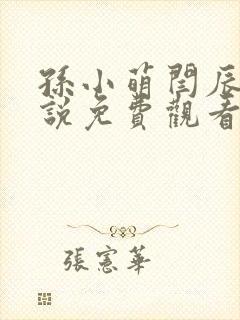 孫小萌閆辰
說免費觀看
張憲華